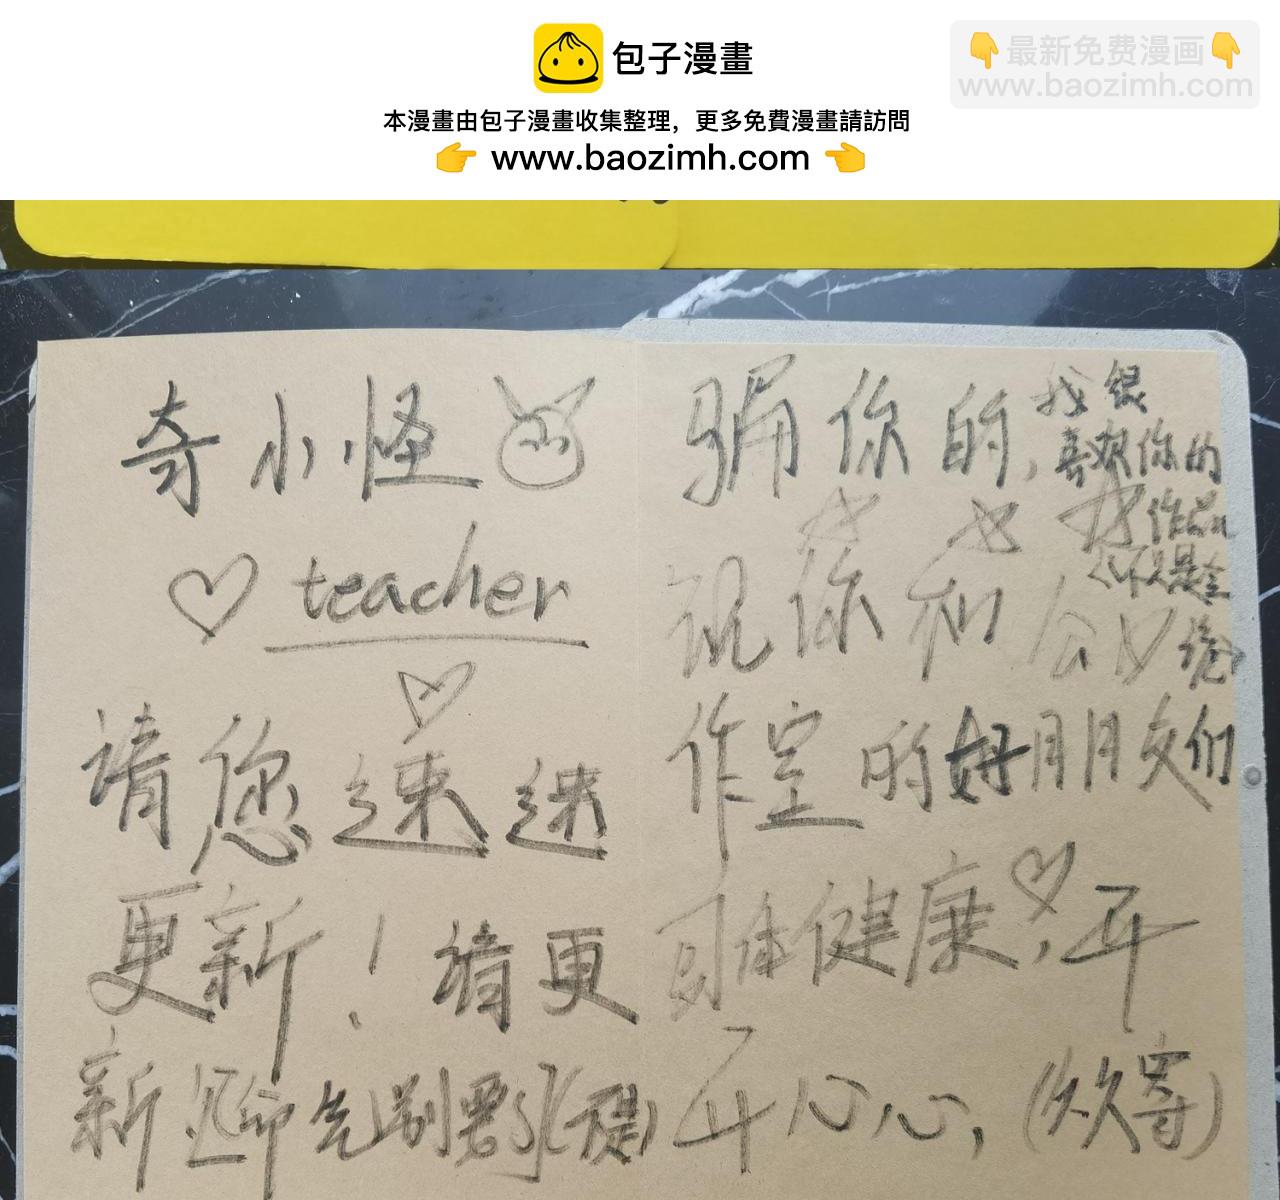 包子漫畫
👇最新免费漫画👇
www.baozimh.com
本漫畫由包子漫畫收集整理，更多免費漫畫請訪問
👉 www.baozimh.com 👈
奇小怪
♡ teacher
♡
请您速速
更新！请更
新
骗你的，我很
喜欢你的
作品
祝你和
作室的好朋友们
身体健康♡，开
开心心，